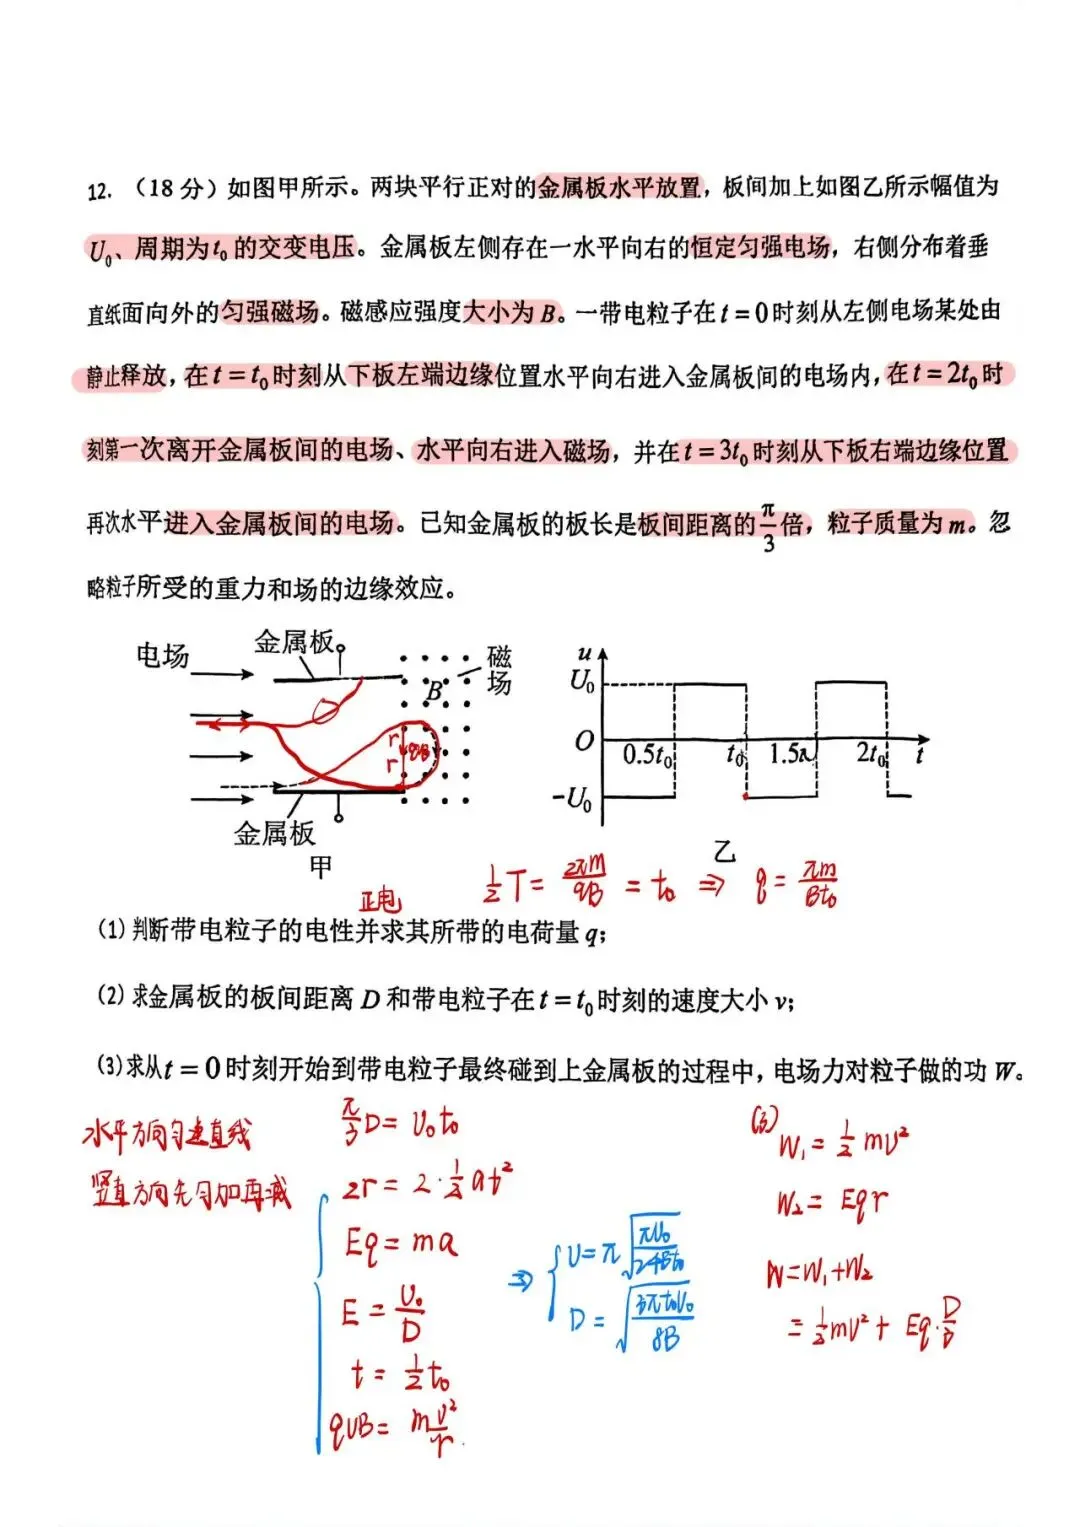 12. （18 分）如图甲所示。两块平行正对的金属板水平放置，板间加上如图乙所示幅值为
U₀、周期为t₀的交变电压。金属板左侧存在一水平向右的恒定匀强电场，右侧分布着垂
直纸面向外的匀强磁场。磁感应强度大小为B。一带电粒子在t=0时刻从左侧电场某处由
静止释放，在t=t₀时刻从下板左端边缘位置水平向右进入金属板间的电场内，在t=2t₀时
刻第一次离开金属板间的电场、水平向右进入磁场，并在t=3t₀时刻从下板右端边缘位置
再次水平进入金属板间的电场。已知金属板的板长是板间距离的π/3倍，粒子质量为m。忽
略粒子所受的重力和场的边缘效应。
电场
金属板
磁场
B
r
r
金属板
甲
u
U₀
O
0.5t₀
t₀
2t₀
t
-U₀
乙
正电
½T= 2πm/qB = t₀ ⇒ q= πm/Bt₀
(1) 判断带电粒子的电性并求其所带的电荷量q；
(2) 求金属板的板间距离D和带电粒子在t=t₀时刻的速度大小v；
(3)求从t=0时刻开始到带电粒子最终碰到上金属板的过程中，电场力对粒子做的功W。
水平方向匀速直线
竖直方向先匀加再减
π/3 D= v₀t₀
2r= 2·½at²
Eq= ma
E = U₀/D
t= ½t₀
qvB= m v²/r
⇒ v=π√(πU₀/24Bt₀)
D= √(3πt₀U₀/8B)
(3)
W₁= ½mv²
W₂= Eqr
W=W₁+W₂
= ½mv²+ Eq·D/3